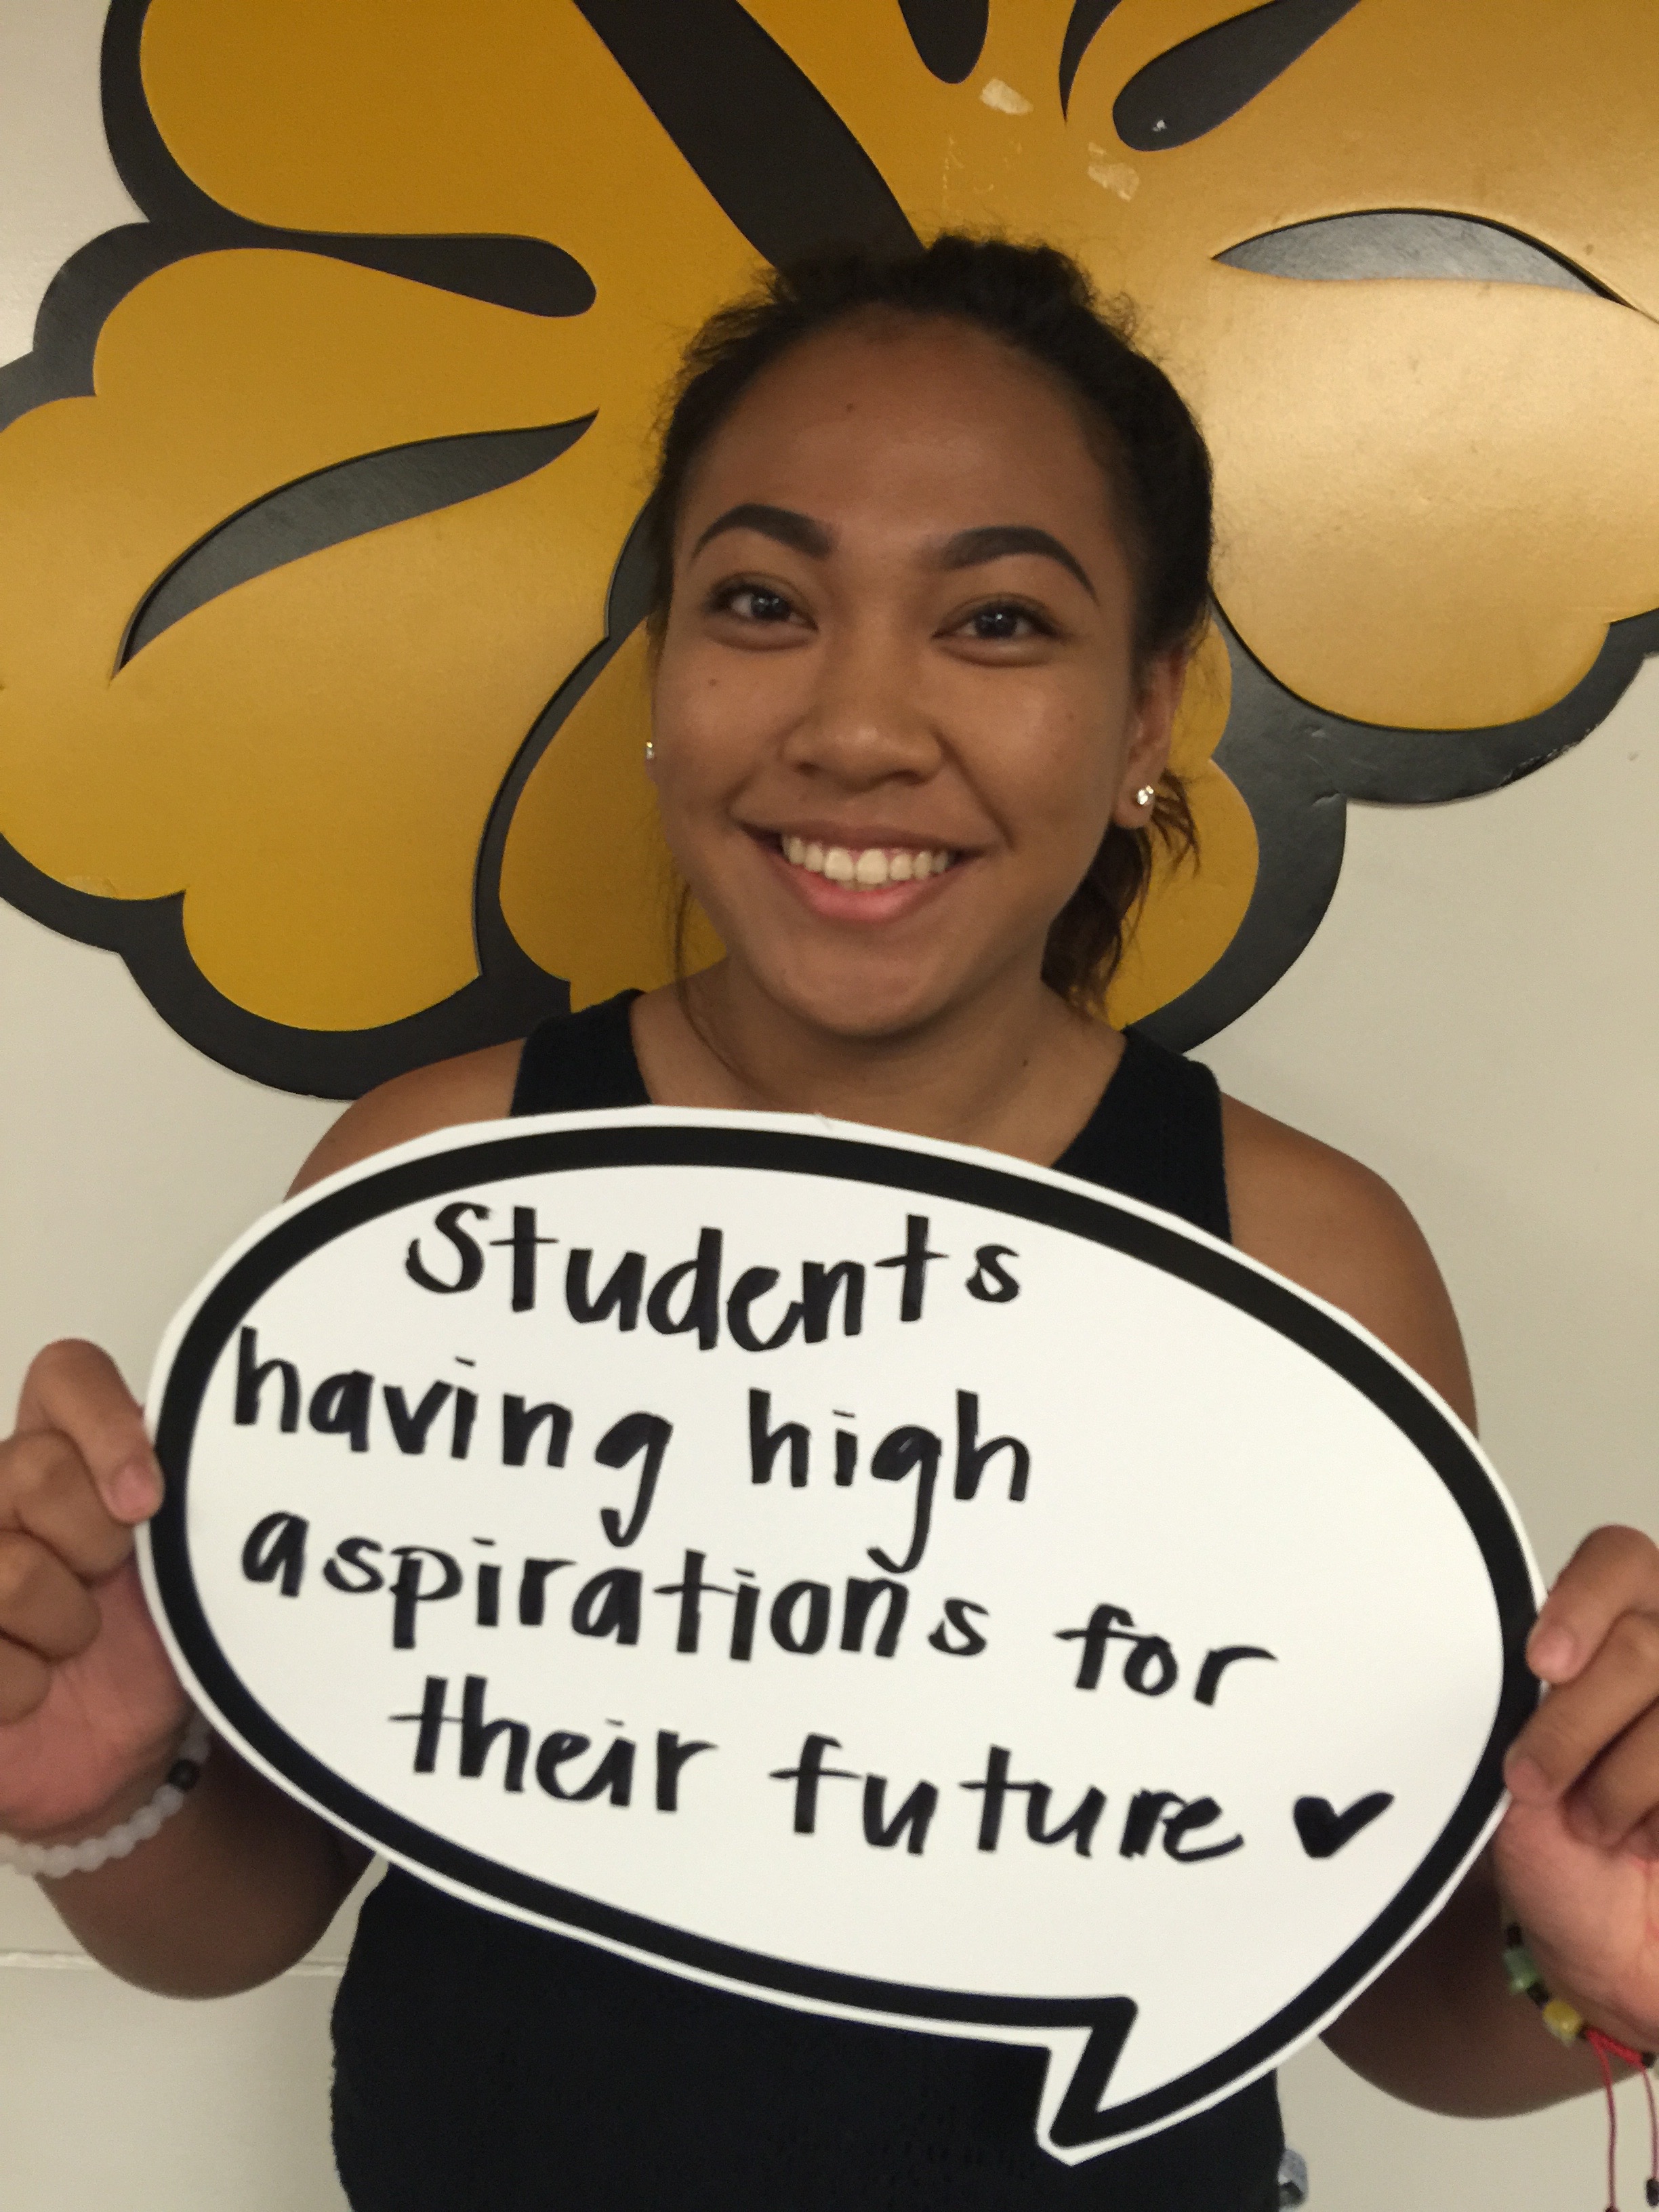 Students
having high
aspirations for
their future ♥